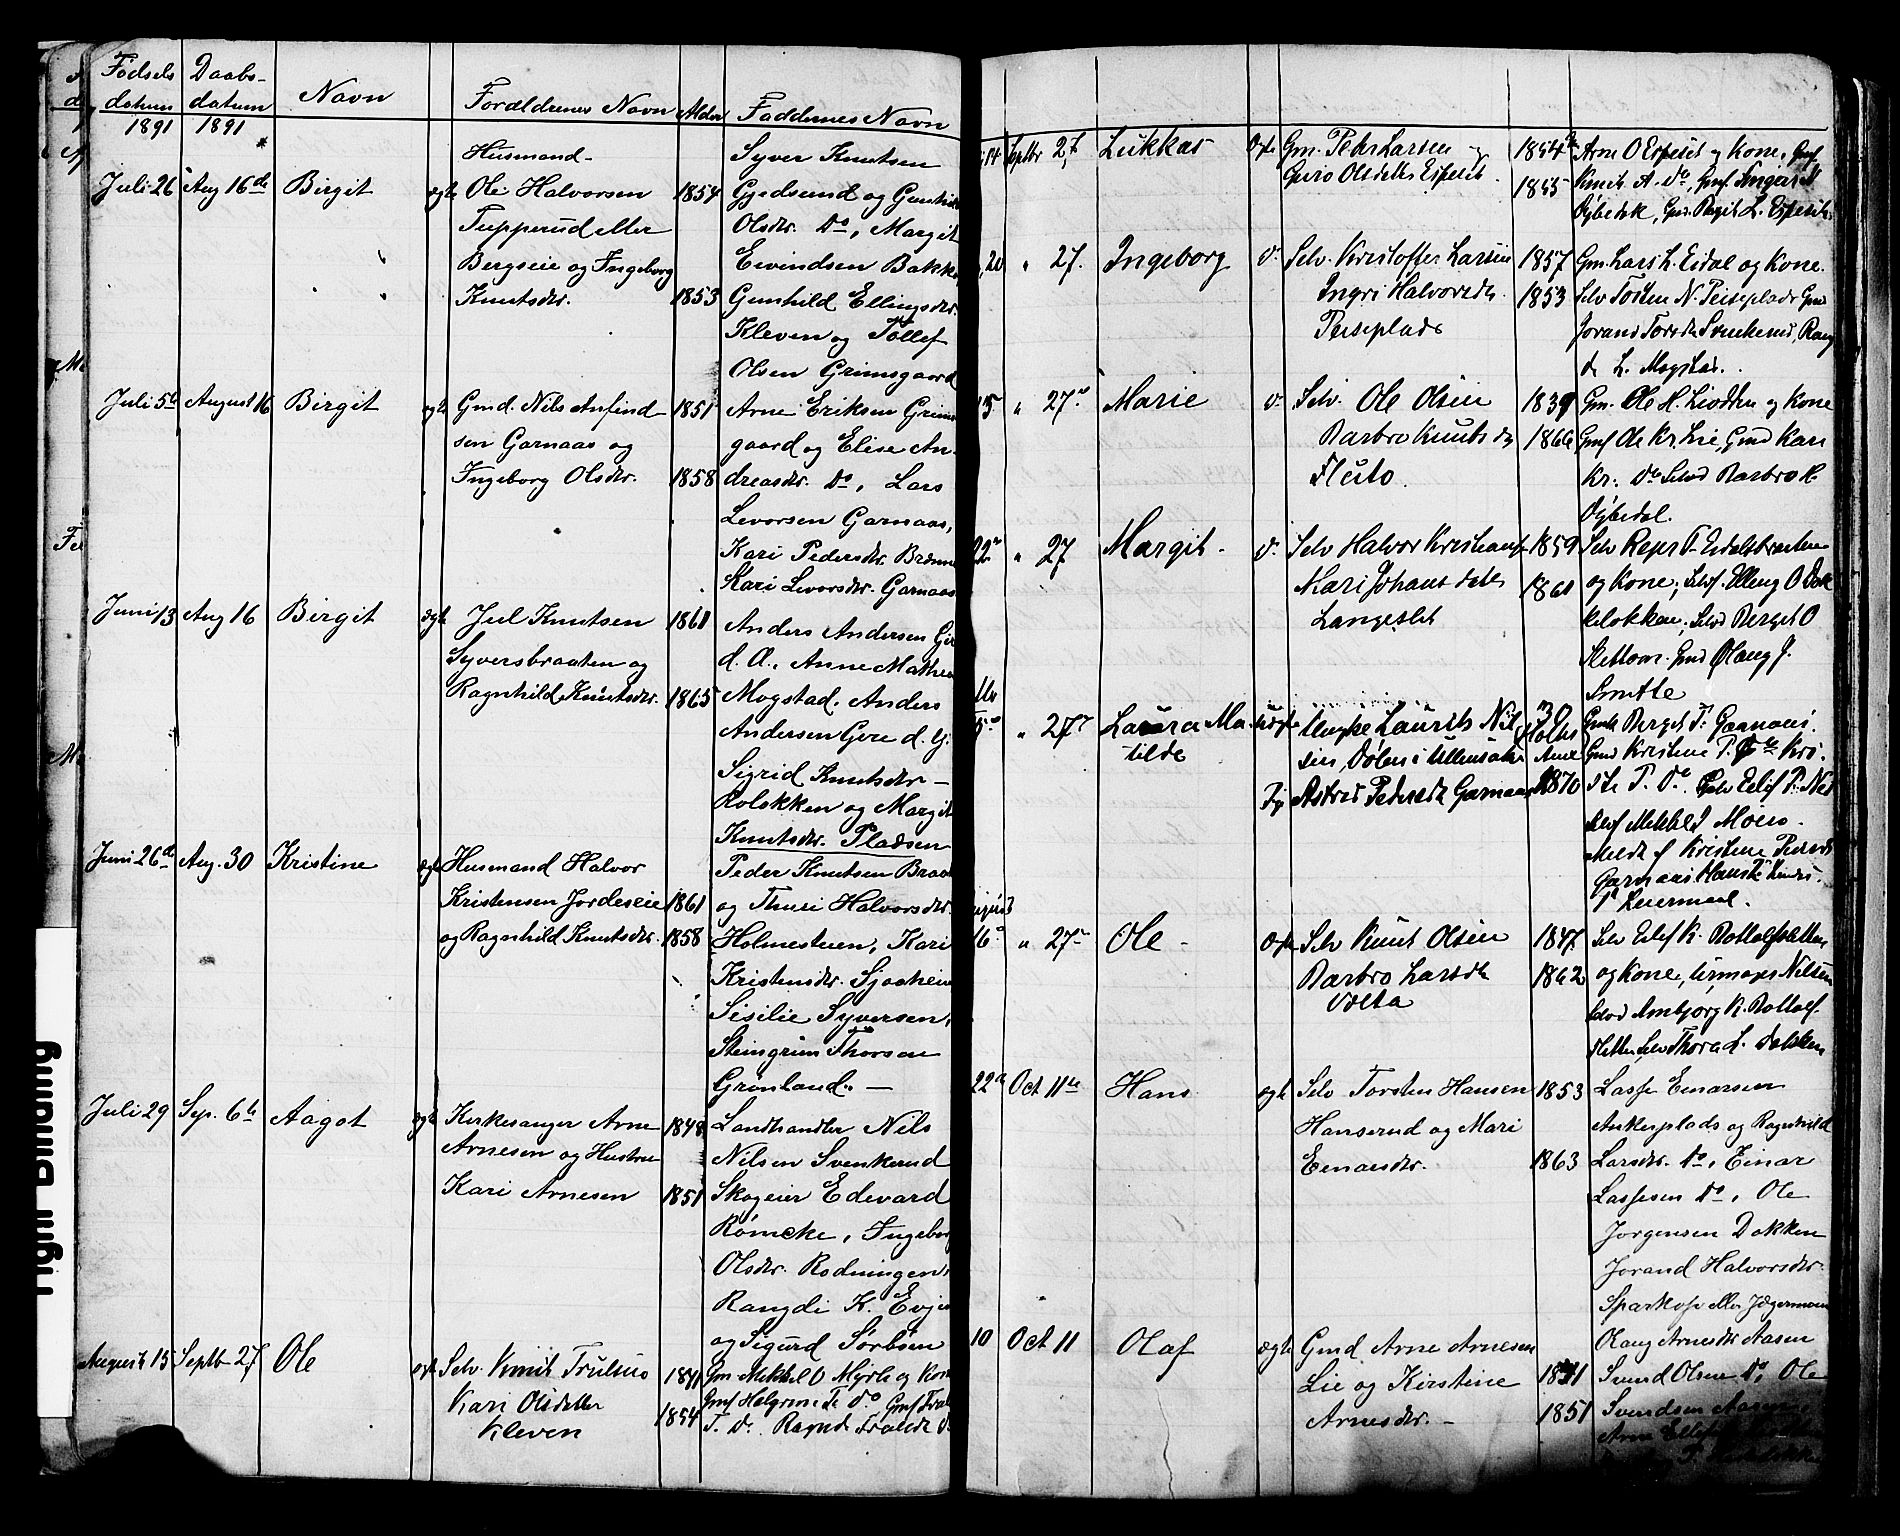 Fødsels
datum
1891
Daabs-
datum
1891
Navn
Forældrenes Navn
Alder
Faddernes Navn
Juli 26
Aug 16de
Birgit
ægte
Husmand-
Ole Halvorsen
Tupperud eller
Bergseie og Ingeborg
Knutsdtr.
1854
1853
Syver Knutsen
Gjedsund og Gunhild
Olsdtr. Do, Margit
Eivindsen Bakke,
Gunhild Ellingsdtr.
Kleven og Tollef
Olsen Grimsgaard
Juli 5te
August 16
Birgit
ægte
Gmd. Nils Anfind
sen Garnaas og
Ingeborg Olsdtr.
1851
1858
Arne Eriksen Grims
gaard og Elise An-
dreasdtr. Do, Lars
Levorsen Garnaas,
Kari Pedersdtr.
Kari Levorsdtr. Garnaas
Juni 13
Aug 16
Birgit
ægte
Jul Knutsen
Syversbraaten og
Ragnhild Knutsdtr.
1861
1865
Anders Andersen
d. Æ., Anne Mathea
Mogstad. Anders
Andersen Gire d. y.
Sigrid Knutsdtr -
Rolokken og Margit
Knutsdtr. Pladsen
Juni 26de
Aug. 30
Kristine
ægte
Husmand Halvor
Kristensen Jordeseie
og Ragnhild Knutsdtr.
1861
1858
Peder Knutsen Braat
og Thuri Halvorsdtr.
Holmestuen, Kari
Kristensdtr. Sjaaheim
Sisilie Syversen,
Steingrim Thorsen
Grønland. -
Juli 29
Sep. 6te
Aagot
ægte
Kirkesanger Arne
Arnesen og Hustru
Kari Arnesen
1848
1851
Landhandler Nils
Nilsen Svenkerud
Skogeier Edevard
Rømcke, Ingeborg
Olsdtr. Rodningen,
Rangdi K. Evjen
og Sigurd Sørbøen
August 15
Septb 27
Ole
ægte
Selv. Knut Trulsen
Kari Olsdatter
Kleven
1841
1854
Gm Mikkel O Myrle og Kone
Gmf Helgrim T. Do
T. Do
Septbr 27
Lukkas
Ægte
Gm. Peder Larsen og
Guro Olsdatter Espeset.
1854
1855
Arne O Espeset og Kone,
Knut A. Do, Gmf. Inger
Dybedok, Gm. Birgit L. Espeset
20
" 27.
Ingeborg
Do
Selv. Kristoffer Larsen
Ingri Halvorsdtr
Peiseplads
1857
1853
Gm. Lars L. Eidal og Kone.
Selv Torsten N. Peiseplads Gmd
Jorand Torsdtr Svenkerud,
L. Mogstad.
15
" 27
Marie
Do
Selv. Ole Olsen
Barbro Knutsdtr
Fluto
1839
1866
Gm. Ole H. Liodden og Kone
Gmf Ole Kr. Lie, Gmd Kari
Kr. Do Selvd Barbro H.
Dybedal.
22
" 27
Margit -
Do
Selv Halvor Kristians
Mari Johans datter
Langeslet
1859
1861
Selv Repr T. Eidalsbraaten
og Kone; Selvf. Elling O Dok
kelokken; Selvd Berget O
Slettom. Gmd Olaug J.
Smette
5
" 27
Laura Ma
tilde
uægte
Ungke Laurits Nil
sen, Dølen i Ullensaker
Pg Astrid Pedersdtr Garnaas
1870
Gmk Berget T. Garnaas
Gmd Kristine P. Do
P. Do. Selv Eilef P.
Selvf Mikkel Moen.
Meldt af Kristine Peders
Garnaas
16
" 27
Ole -
Ægte
Selv Knut Olsen
Barbro Larsdtr
Volta
1847
1862
Selv Eilef K. Rollefsletten
og Kone, Nilsen
Selvd Ambjørg K. Rollef-
sletten Selv Thora L. Dokken
22
Oct 11te
Hans
ægte
Selv Torsten Hansen
Hanserud og Mari
Einarsdtr.
1853
1863
Lasse Einarsen
Ankerplads og Ragnhild
Larsdtr. Do, Einar
Lassesen Do, Ole
Jørgensen Dokken
Jorand Halvorsdtr.
Sparkop eller Jægermoen
10
Oct 11
Olaf
ægte
Gmd Arne Arnesen
Lie og Kirstine
Arnesdtr. -
1841
1851
Olaug Arnesdtr Aasen
Svend Olsen Do, Ole
Svendsen Aasen,
Arne
Flå og Hallingdal